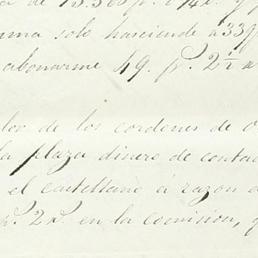 a de 13.363 p.
uma solo haciende a 33 p
abonarme 49. p. 2½
los de los cordones de o
la plaza dinero de conta
el castellano á razon d
2 r. en la comision, q